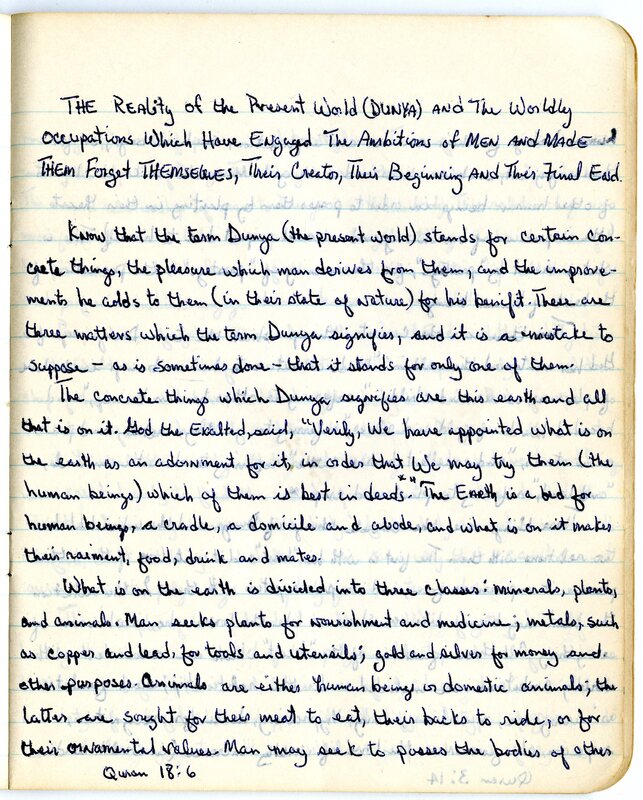 THE Reality of the Present World (DUNYA) AND The Worldly
Occupations Which Have Engaged The Ambitions of MEN AND MADE
THEM Forget THEMSELVES, Their Creator, Their Beginning AND Their Final End.
Know that the term Dunya (the present world) stands for certain con-
crete things, the pleasure which man derives from them, and the improve-
ments he adds to them (in their state of nature) for his benifit. These are
three matters which the term Dunya signifies, and it is a mistake to
suppose - as is sometimes done - that it stands for only one of them.
The concrete things which Dunya signifies are this earth and all
that is on it. God the Exalted, said, "Verily, We have appointed what is on
the earth as an adornment for it, in order that We may try them (the
human beings) which of them is best in deeds*." The Earth is a bed for
human beings, a cradle, a domicile and abode, and what is on it makes
their raiment, food, drink and mates.
What is on the earth is divided into three classes: minerals, plants,
and animals. Man seeks plants for nourishment and medicine; metals, such
as copper and lead, for tools and utensils; gold and silver for money and
other purposes. Animals are either human beings or domestic animals; the
latter are sought for their meat to eat, their backs to ride, or for
their ornamental values. Man may seek to posses the bodies of other
Quran 18:6
Quran 3:14